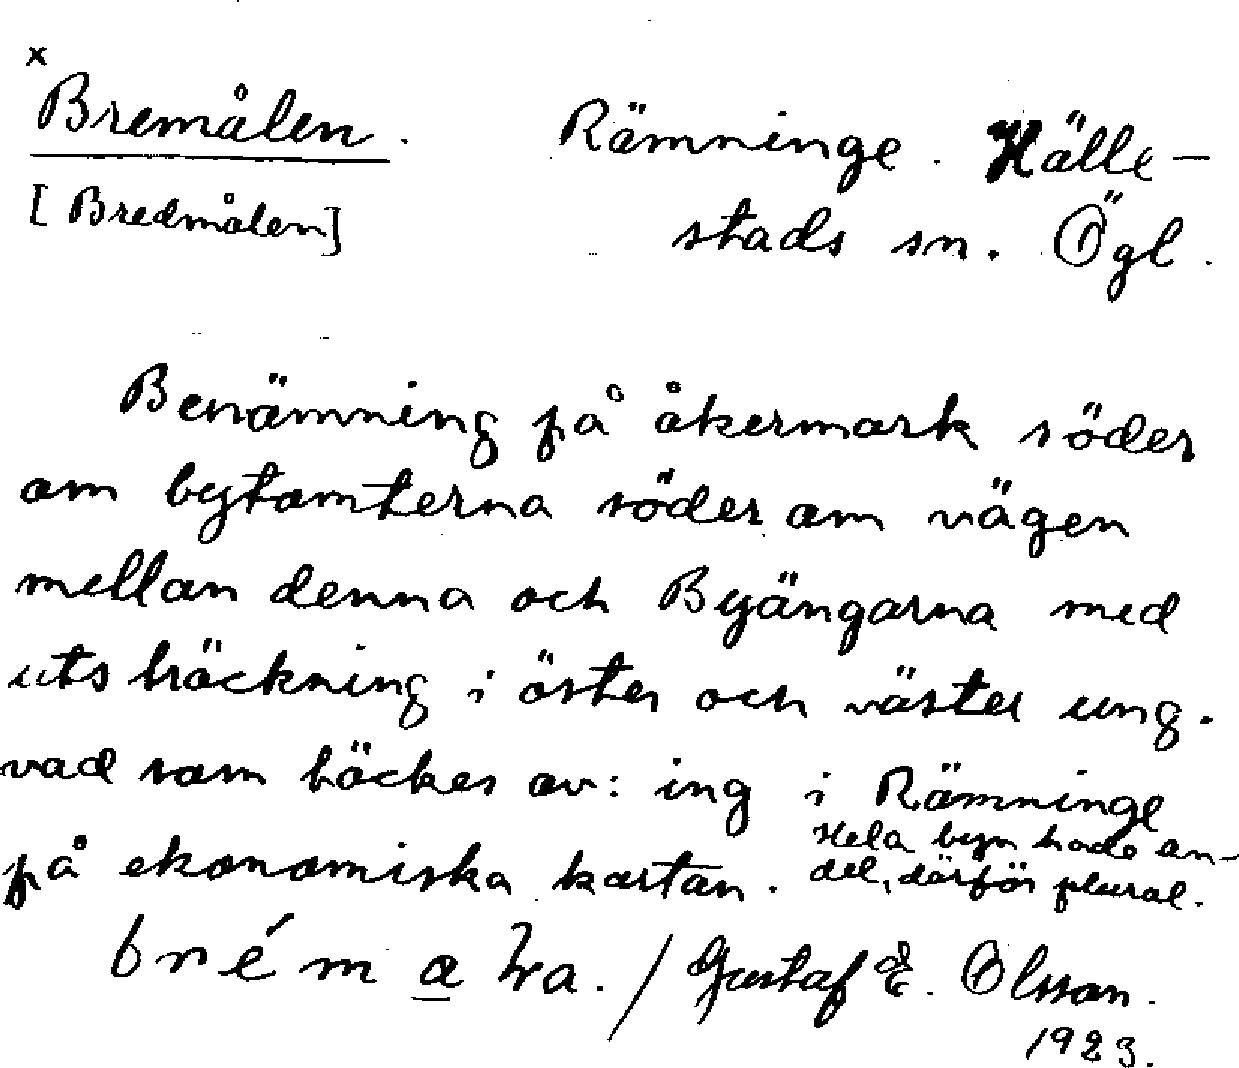 x
Bremålen. Rämninge. Hälle-
[Bredmålen] stads sn. Ögl.
Benämning på åkermark söder
om bytomterna söder om vägen
mellan denna och Byängarna med
utsträckning i öster och väster ung.
vad som täckes av: ing i Rämninge
på ekonomiska kartan. Hela byn hade an-
del, därför plural.
/ Gustaf E. Olsson.
1923.